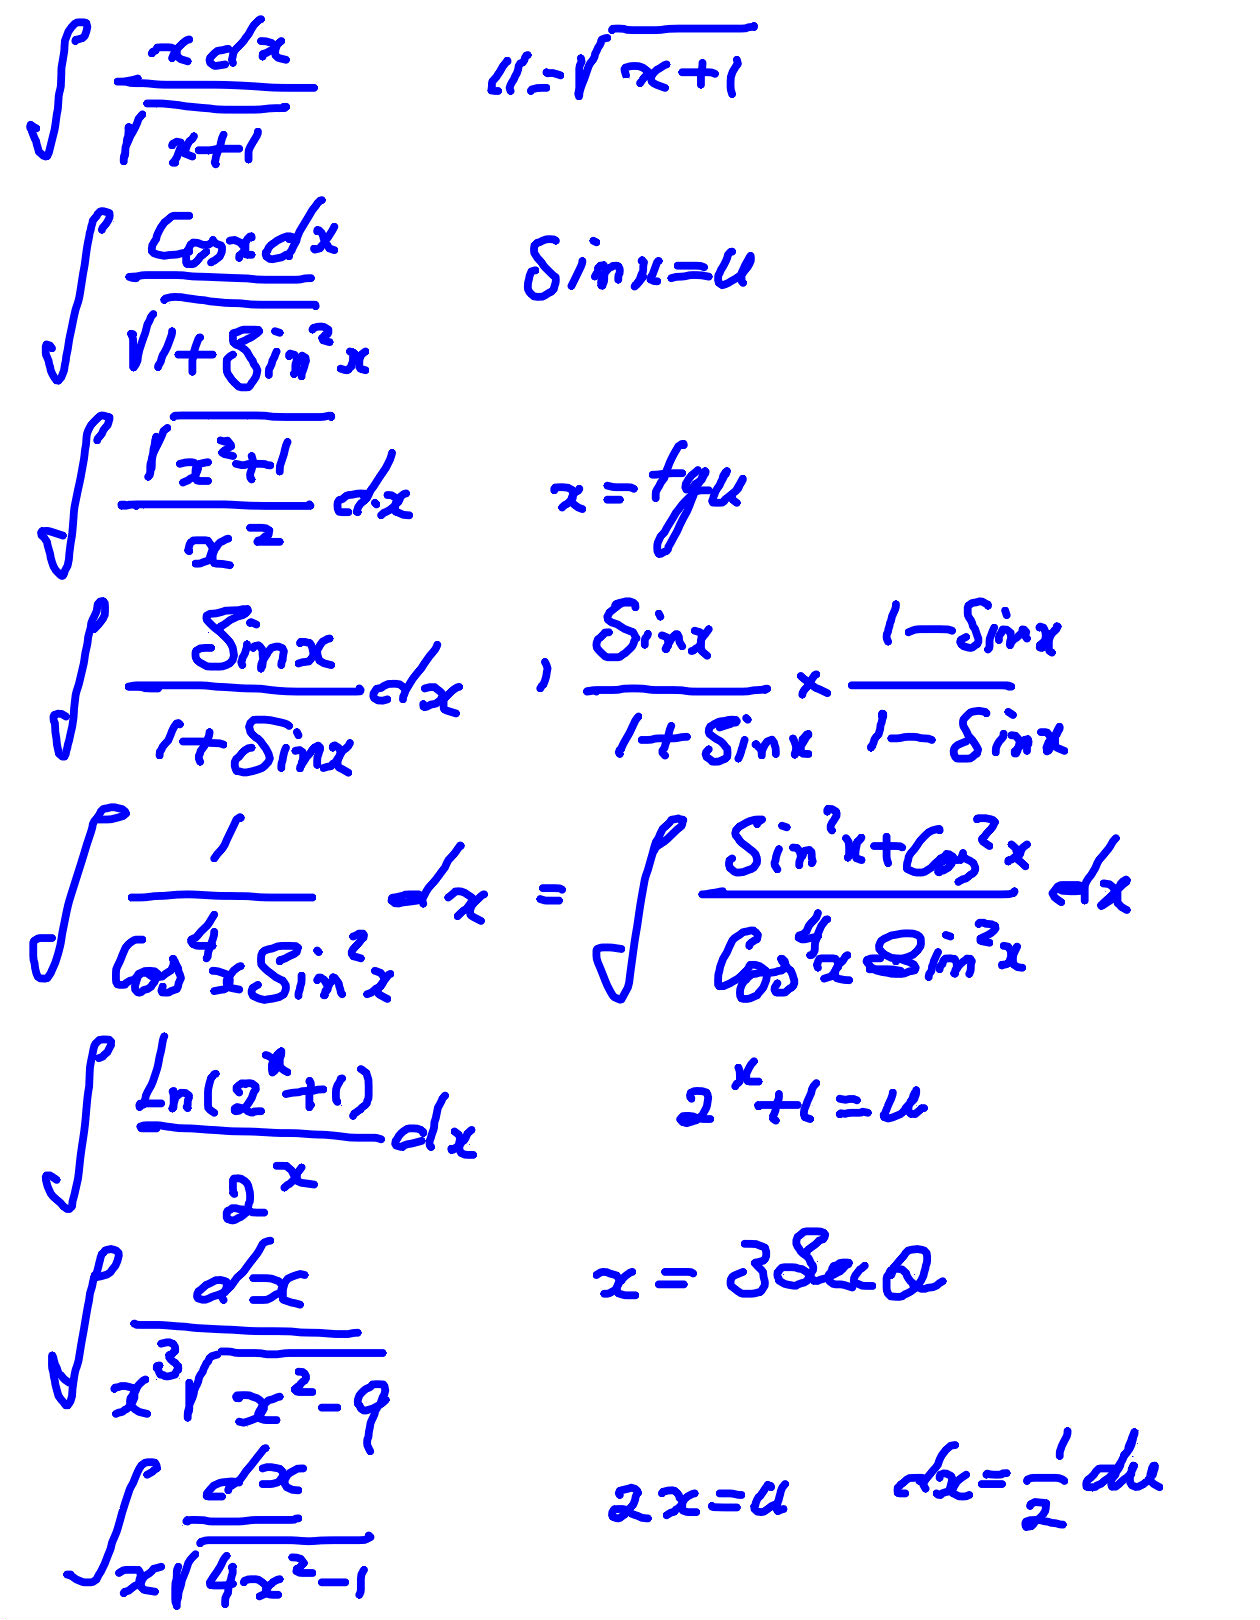 ∫ x dx / √(x+1)    u = √(x+1)
∫ Cosx dx / √(1+Sin²x)    Sinx = u
∫ √(x²+1) / x² dx    x = tgu
∫ Sinx / (1+Sinx) dx , Sinx / (1+Sinx) × (1-Sinx) / (1-Sinx)
∫ 1 / (Cos⁴x Sin²x) dx = ∫ (Sin²x + Cos²x) / (Cos⁴x Sin²x) dx
∫ Ln(2^x+1) / 2^x dx    2^x+1 = u
∫ dx / (x³√(x²-9))    x = 3Secθ
∫ dx / (x√(4x²-1))    2x = u    dx = 1/2 du